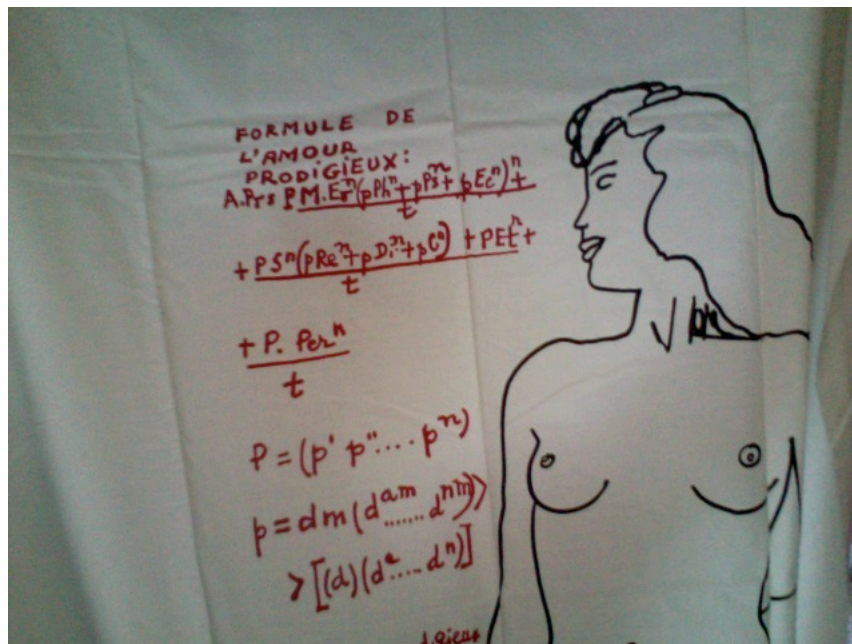 FORMULE DE
L'AMOUR
PRODIGIEUX:
A.Prs PM.Erⁿ(pPhⁿ+pPsⁿ+pEcⁿ)ⁿ+
t
+PSⁿ(pReⁿ+pDiⁿ+pCⁿ)+PEtⁿ+
t
+P.Perⁿ
t
P=(p' p''.... pⁿ)
p=dm(d^am....... d^nm)>
>[(d)(d^a..... dⁿ)]